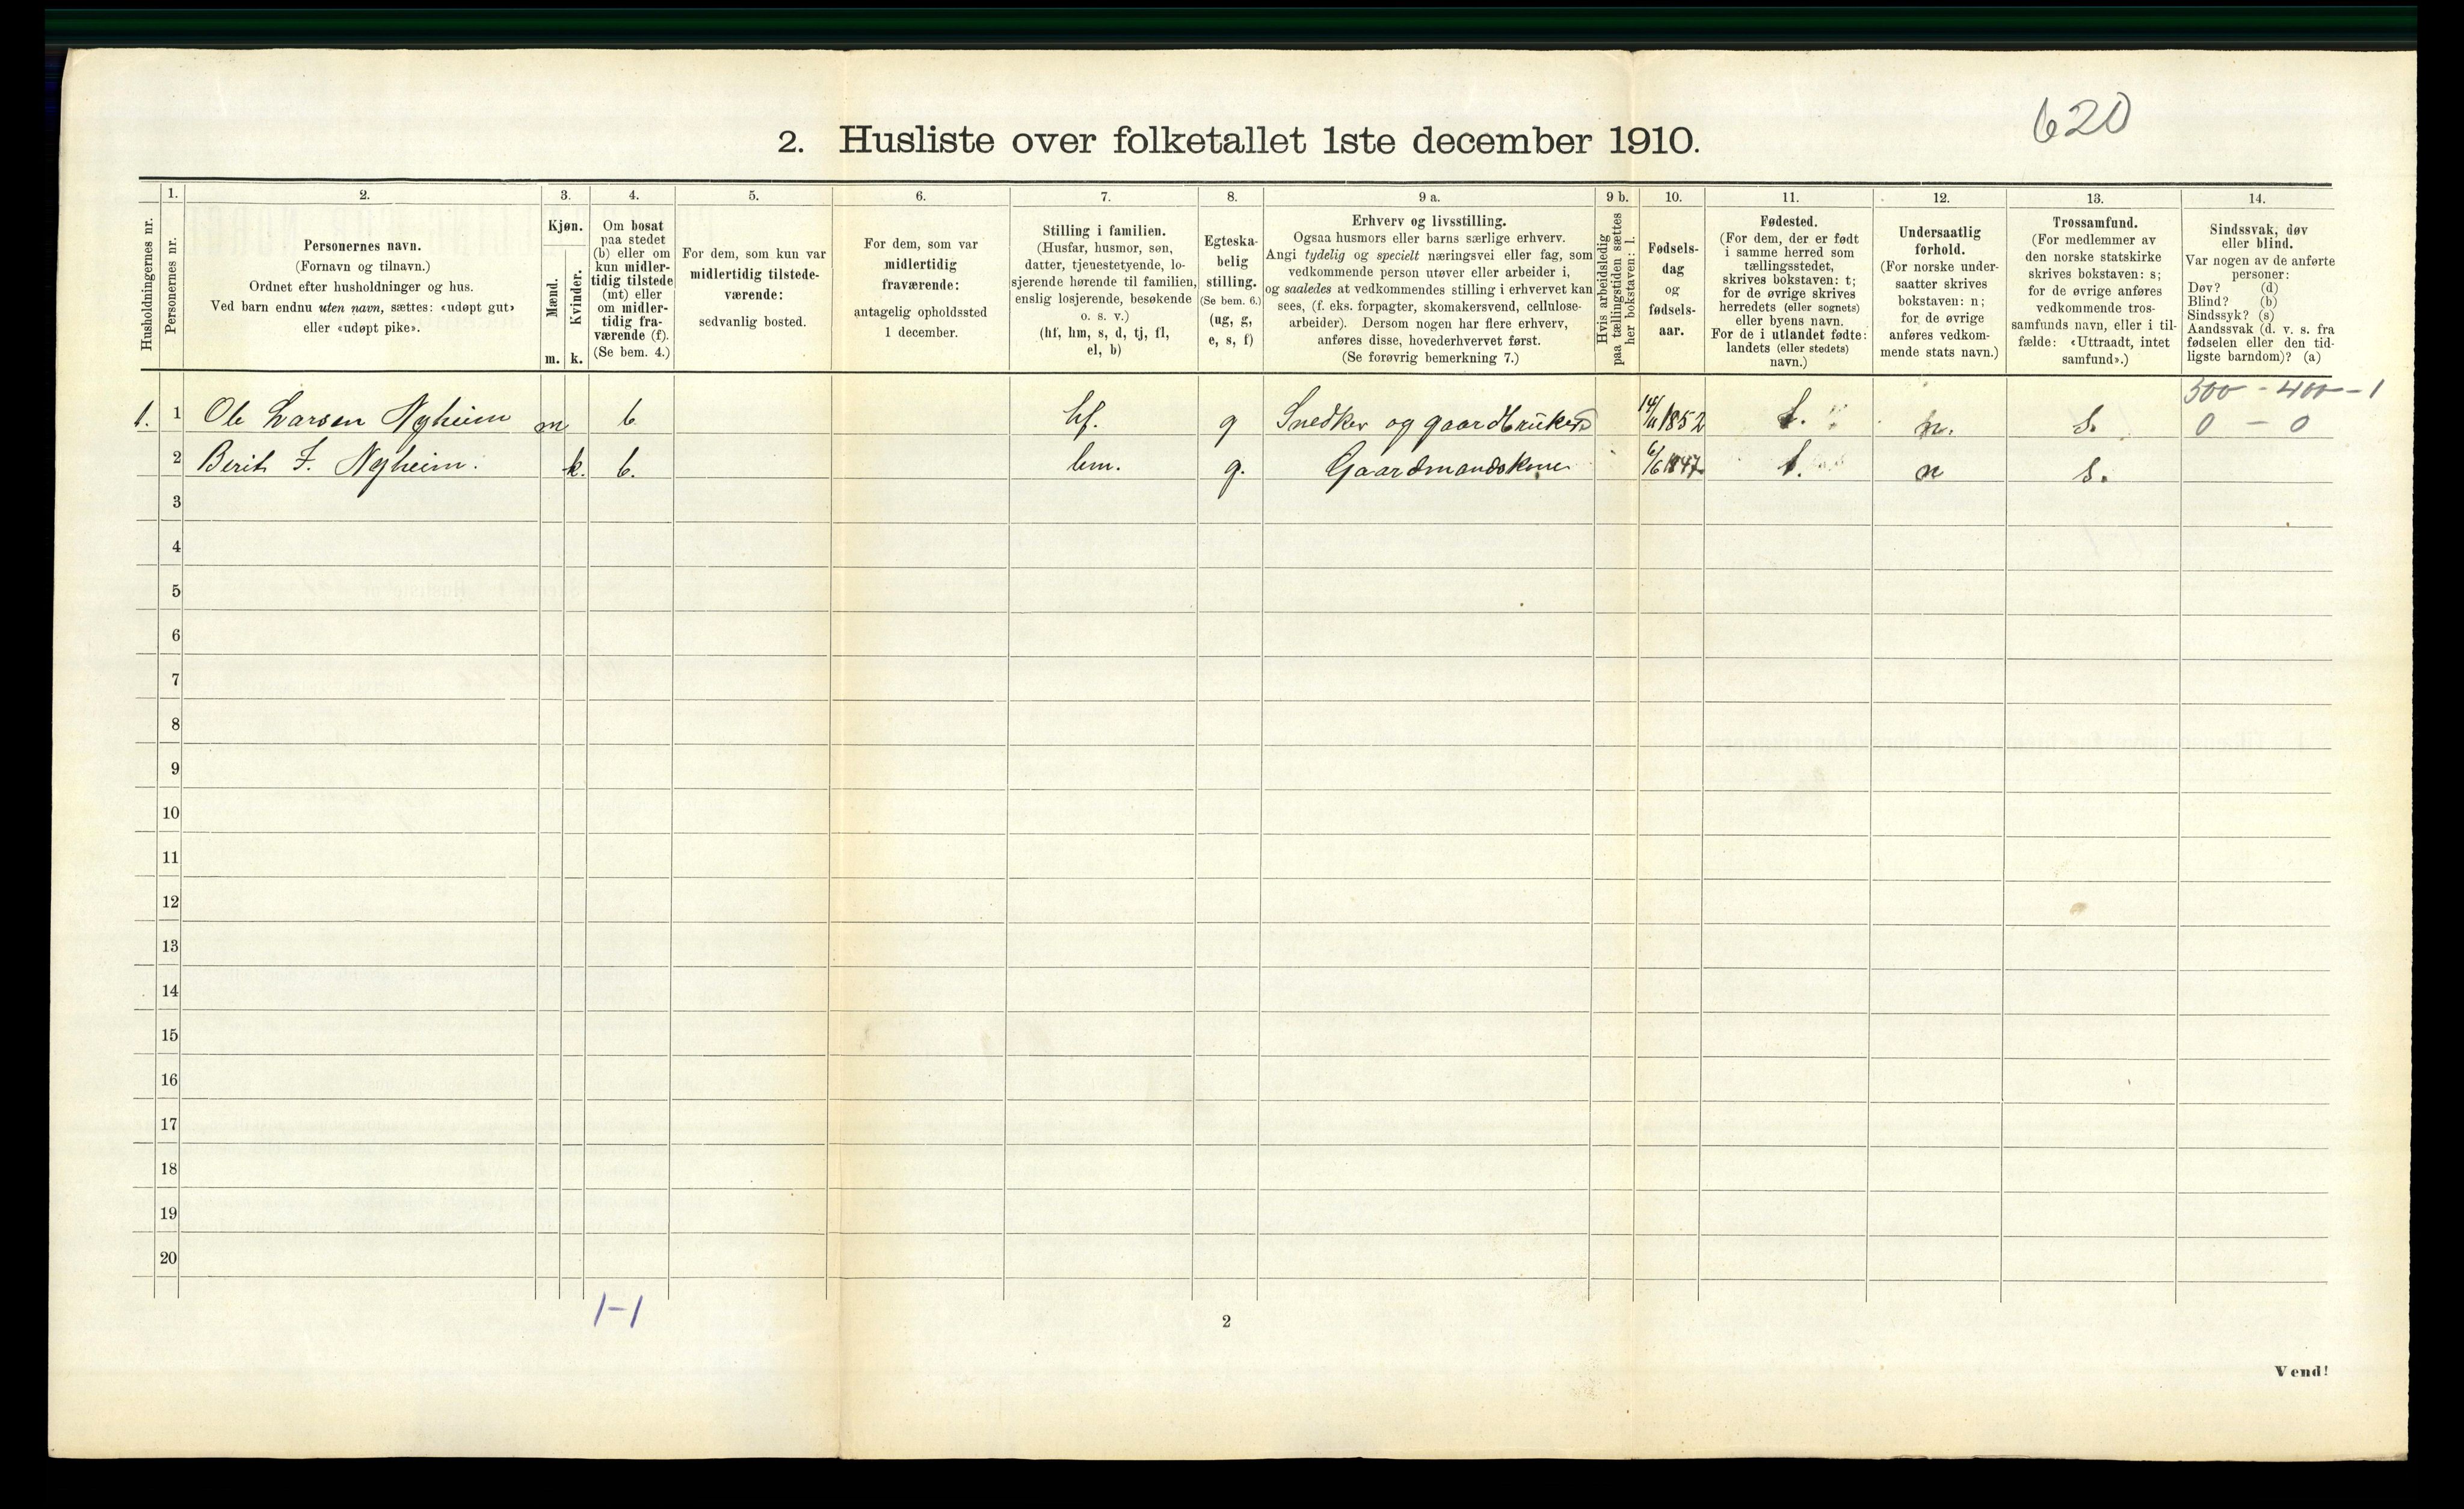 620
2. Husliste over folketallet 1ste december 1910.
Husholdningernes nr.
1.
Personernes nr.
2.
Personernes navn.
(Fornavn og tilnavn.)
Ordnet efter husholdninger og hus.
Ved barn endnu uten navn, sættes: «udøpt gut»
eller «udøpt pike».
3.
Kjøn.
Mænd.
m.
Kvinder.
k.
4.
Om bosat
paa stedet
(b) eller om
kun midler-
tidig tilstede
(mt) eller
om midler-
tidig fra-
værende (f).
(Se bem. 4.)
5.
For dem, som kun var
midlertidig tilstede-
værende:
sedvanlig bosted.
6.
For dem, som var
midlertidig
fraværende:
antagelig opholdssted
1 december.
7.
Stilling i familien.
(Husfar, husmor, søn,
datter, tjenestetyende, lo-
sjerende hørende til familien,
enslig losjerende, besøkende
o. s. v.)
(hf, hm, s, d, tj, fl,
el, b)
8.
Egteska-
belig
stilling.
(Se bem. 6.)
(ug, g,
e, s, f)
9 a.
Erhverv og livsstilling.
Ogsaa husmors eller barns særlige erhverv.
Angi tydelig og specielt næringsvei eller fag, som
vedkommende person utøver eller arbeider i,
og saaledes at vedkommendes stilling i erhvervet kan
sees, (f. eks. forpagter, skomakersvend, cellulose-
arbeider). Dersom nogen har flere erhverv,
anføres disse, hovederhvervet først.
(Se forøvrig bemerkning 7.)
9 b.
Hvis arbeidsledig
paa tællingstiden sættes
her bokstaven: l.
10.
Fødsels-
dag
og
fødsels-
aar.
11.
Fødested.
(For dem, der er født
i samme herred som
tællingsstedet,
skrives bokstaven: t;
for de øvrige skrives
herredets (eller sognets)
eller byens navn.
For de i utlandet fødte:
landets (eller stedets)
navn.)
12.
Undersaatlig
forhold.
(For norske under-
saatter skrives
bokstaven: n;
for de øvrige
anføres vedkom-
mende stats navn.)
13.
Trossamfund.
(For medlemmer av
den norske statskirke
skrives bokstaven: s;
for de øvrige anføres
vedkommende tros-
samfunds navn, eller i til-
fælde: «Uttraadt, intet
samfund».)
14.
Sindssvak, døv
eller blind.
Var nogen av de anførte
personer:
Døv? (d)
Blind? (b)
Sindssyk? (s)
Aandssvak (d. v. s. fra
fødselen eller den tid-
ligste barndom)? (a)
500 - 400 - 1
1. 1 Ole Larsen Nyheim m b hf. g Snedker og gaardbruker 14/11 1852 t. n. s. 0 - 0
2 Berit J. Nyheim. k. b. hm. g. Gaardmandskone 6/6 1847 t. n s.
3
4
5
6
7
8
9
10
11
12
13
14
15
16
17
18
19
20
1-1
2
Vend!